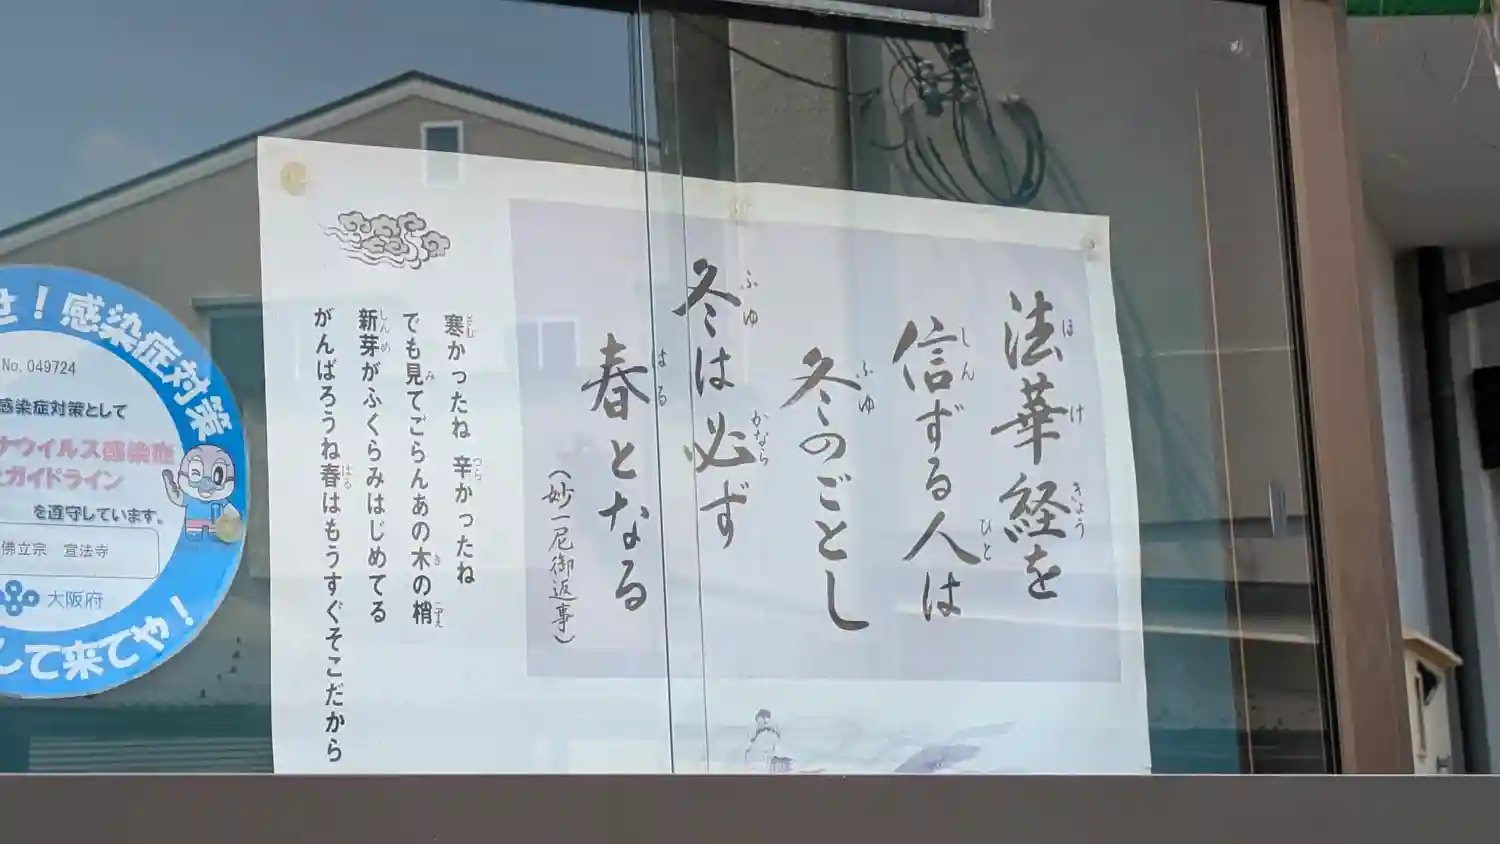 法華経を
信ずる人は
冬のごとし
冬は必ず
春となる
(妙一尼御返事)
寒かったね 辛かったね
でも見てごらんあの木の梢
新芽がふくらみはじめてる
がんばろうね春はもうすぐそこだから
せ!感染症対策
No. 049724
感染症対策として
ナウイルス感染症
ガイドライン
を遵守しています。
佛立宗 宣法寺
大阪府
して来てや!